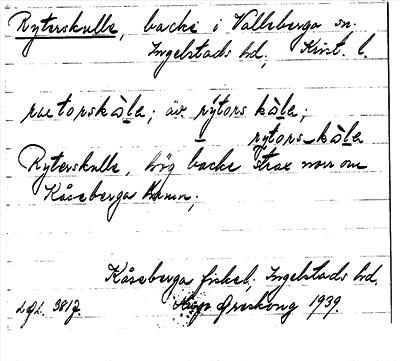 Ryterskulle, backe i Valleberga sn.
Ingelstads hd; Krist. l.
ruetorskåla; äv rýtors kåla;
rytors-kåla
Ryterskulle, hög backe strax norr om
Kåseberga hamn;
Kåseberga fiskel; Ingelstads hd.
LGL. 3817. Öreskong 1939.